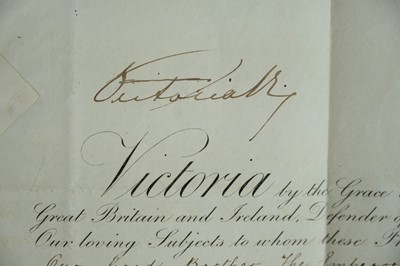 Victoria R
Victoria by the Grace
Great Britain and Ireland, Defender
Our loving Subjects to whom these
Our Good Brother The Emperor